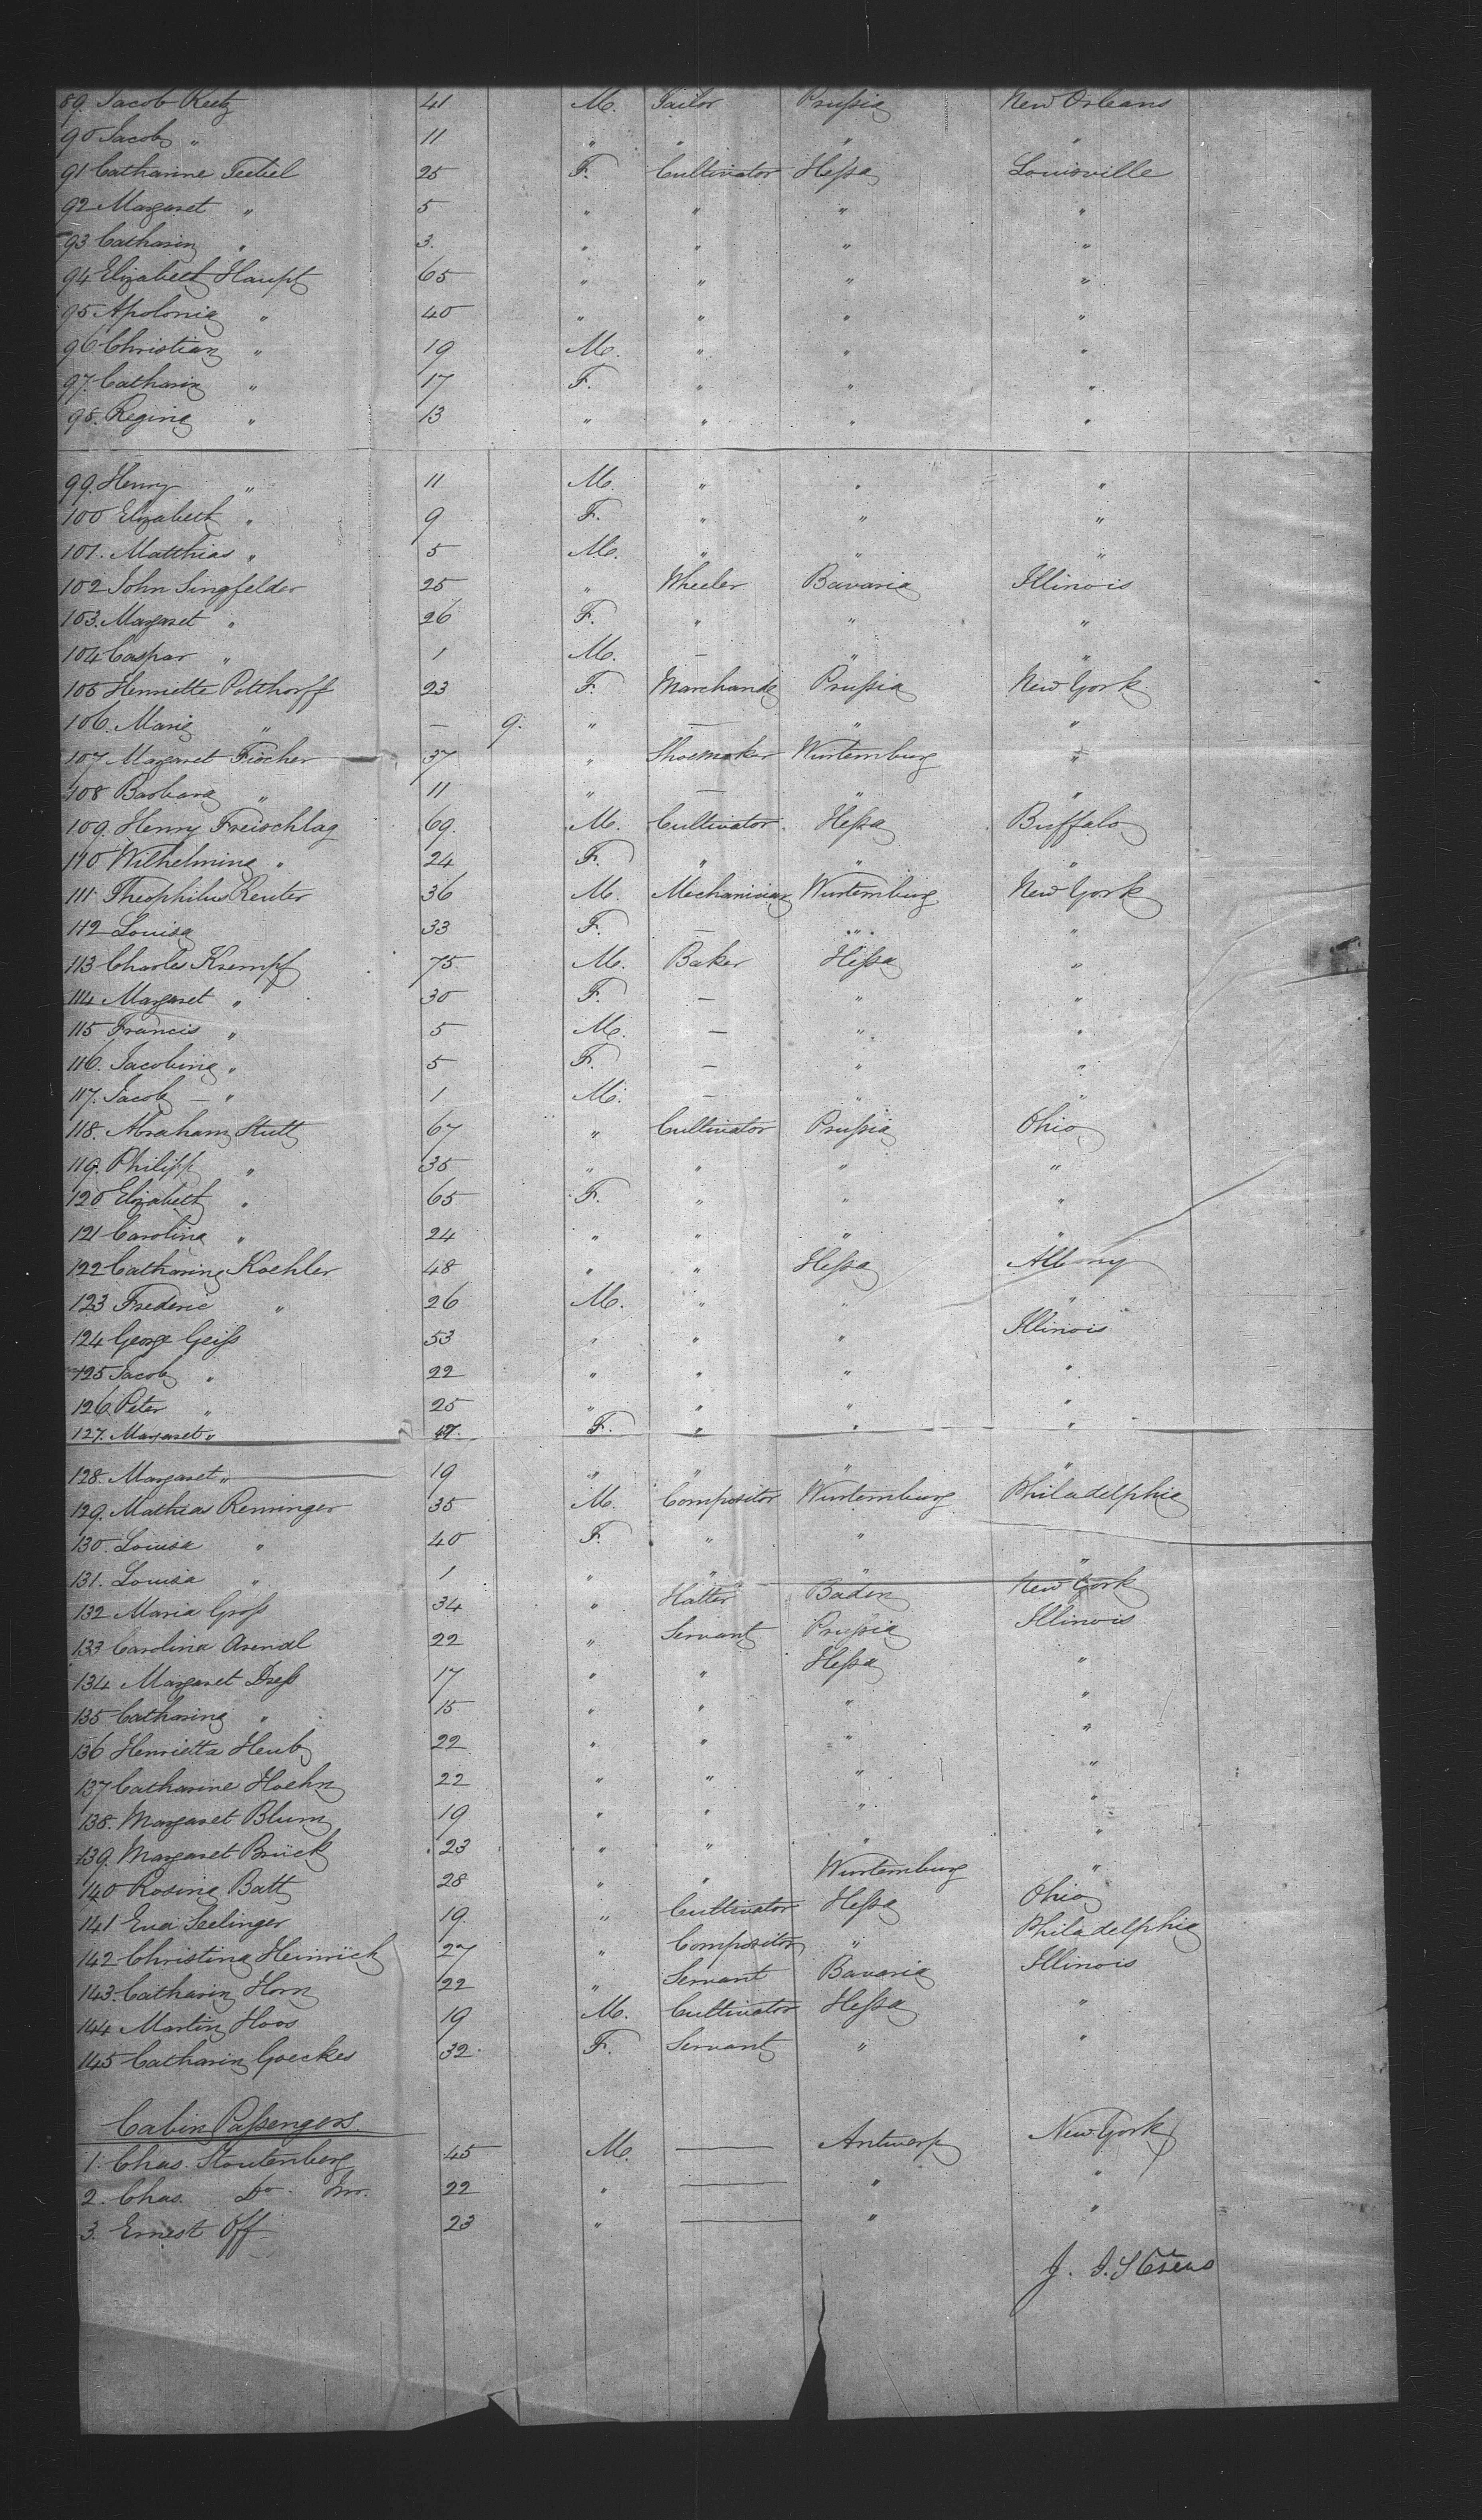 89. Jacob Reetz 41 M. Tailor Prussia New Orleans
90 Jacob " 11 " " " "
91 Catharine Teetiel 25 F. Cultivator Hessa Louisville
92 Margaret " 5 " " " "
93 Catharin " 3. " " " "
94 Elizabeth Haupt 65 " " " "
95 Apolonia " 40 " " " "
96 Christian " 19 M. " " "
97. Catharin " 17 F. " " "
98. Regina " 13 " " " "
99. Henry " 11 M. " " "
100 Elizabeth " 9 F. " " "
101. Matthias " 5 M. " " "
102 John Singfelder 25 " Wheeler Bavaria Illinois
103. Margaret " 26 F. " " "
104 Caspar " 1 M. — " "
105 Henriette Potthorff 23 F. Marchande Prussia New York
106. Marie " — 9. " — " "
107 Margaret Fischer 37 " Shoemaker Wurtemburg "
108 Barbara " 11 " — " "
109. Henry Freischlag 69. M. Cultivator Hessa Buffalo
110 Wilhelmina " 24 F. " " "
111. Theophilus Reuter 36 M. Mechanician Wurtemburg New York
112 Louisa 33 F. — " "
113 Charles Krempf 75 M. Baker Hessa "
114 Margaret " 30 F. — " "
115 Francis " 5 M. — " "
116. Jacobina " 5 F. — " "
117. Jacob — " 1 M. — " "
118. Abraham Stutz 67 " Cultivator Prussia Ohio
119. Philipp " 35 " " " "
120 Elizabeth " 65 F. " " "
121 Carolina " 24 " " " "
122 Catharina Koehler 48 " " Hessa Albany
123 Frederic " 26 M. " " "
124 George Geiss 53 " " " Illinois
125 Jacob " 22 " " " "
126 Peter " 25 " " " "
127. Margaret " 47. F. " " "
128. Margaret " 19 " " " "
129. Mathias Renninger 35 M. Compositor Wurtemburg Philadelphia
130. Louisa " 40 F. " " "
131. Louisa " 1 " " " "
132 Maria Gross 34 " Hatter Baden New York
133 Carolina Arendl 22 " Servant Prussia Illinois
134 Margaret Dress 17 " " Hessa "
135 Catharina " 15 " " " "
136 Henrietta Heub 22 " " " "
137 Catharine Hoehn 22 " " " "
138. Margaret Blum 19 " " " "
139. Margaret Brück 23 " " " "
140 Rosina Batt 28 " " Wurtemburg "
141 Eva Seelinger 19. " Cultivator Hessa Ohio
142 Christina Heinrick 27 " Compositor " Philadelphia
143. Catharin Horn 22 " Servant Bavaria Illinois
144 Martin Hoos 19 M. Cultivator Hessa "
145 Catharin Goeckes 32. F. Servant " "
Cabin Passengers.
1. Chas. Stoutenberg 45 M. — Antwerp New York
2. Chas. Do. Jnr. 22 " — " "
3. Ernest Off 23 " — " "
J. J.